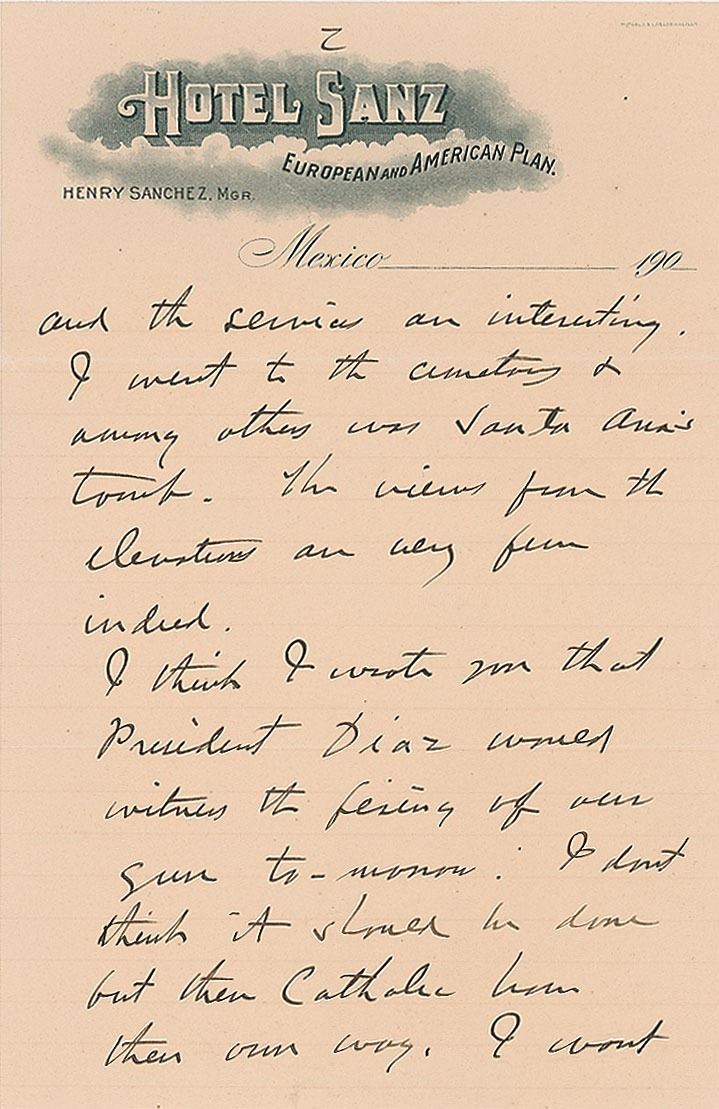 2
HOTEL SANZ
EUROPEAN AND AMERICAN PLAN.
HENRY SANCHEZ, MGR.
Mexico 190
and the services are interesting.
I went to the cemetery &
among others was Santa Ana's
tomb. The views from the
elevations are very fine
indeed.
I think I wrote you that
President Diaz would
witness the firing of our
gun to-morrow. I dont
think it should be done
but these Catholic have
their own way. I wont